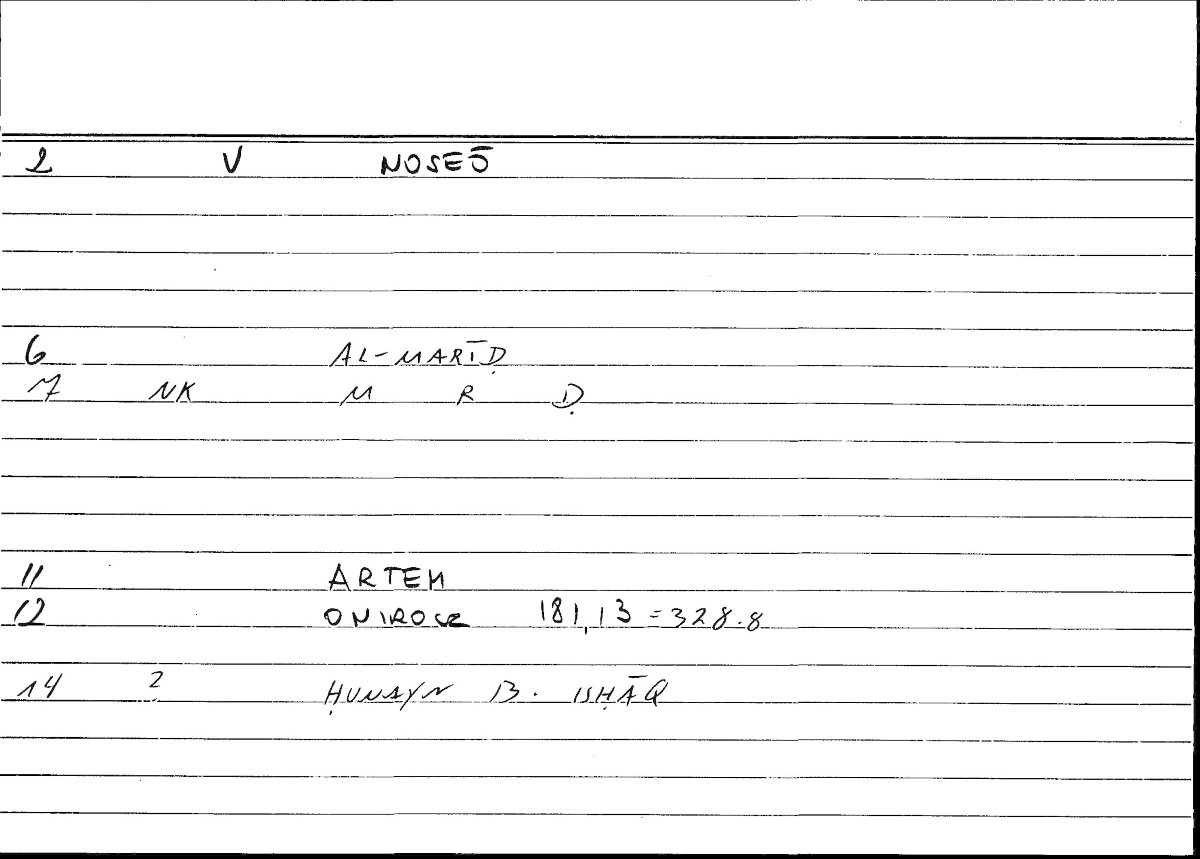 2 V NOSEŌ
6 AL-MARĪḌ
7 NK M R Ḍ
11 ARTEM
12 ONIROCR 181,13 = 328.8
14 2 ḤUNAYN B. ISḤĀQ